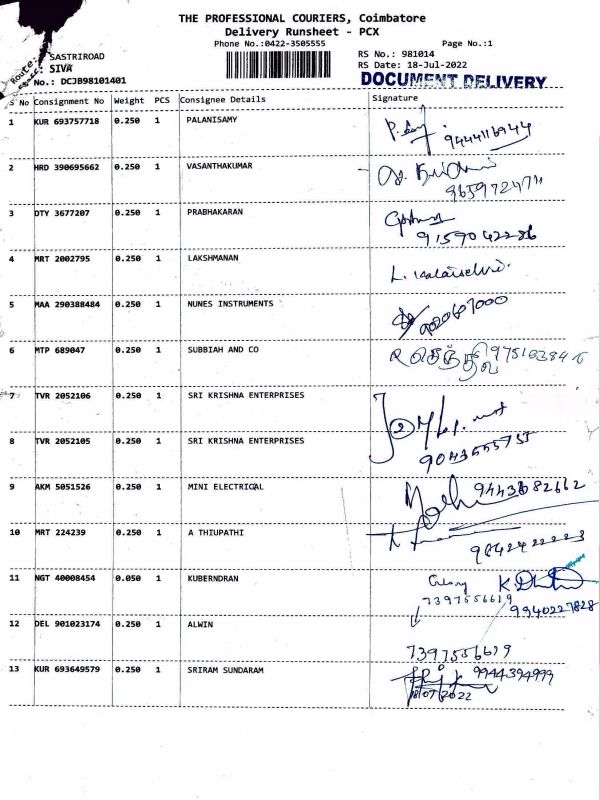 THE PROFESSIONAL COURIERS, Coimbatore
Delivery Runsheet - PCX
Phone No.:0422-3505555 Page No.:1
Route: SASTRIROAD RS No.: 981014
: SIVA RS Date: 18-Jul-2022
No.: DCJB98101401 DOCUMENT DELIVERY
S No Consignment No Weight PCS Consignee Details Signature
1 KUR 693757718 0.250 1 PALANISAMY
9444116944
2 HRD 390695662 0.250 1 VASANTHAKUMAR
9659724711
3 DTY 3677207 0.250 1 PRABHAKARAN
9159042286
4 MRT 2002795 0.250 1 LAKSHMANAN
L. Kalaiselvi.
5 MAA 290388484 0.250 1 NUNES INSTRUMENTS
6 MTP 689047 0.250 1 SUBBIAH AND CO
7 TVR 2052106 0.250 1 SRI KRISHNA ENTERPRISES
8 TVR 2052105 0.250 1 SRI KRISHNA ENTERPRISES
9043555755
9 AKM 5051526 0.250 1 MINI ELECTRICAL 9443682662
10 MRT 224239 0.250 1 A THIUPATHI
9842422223
11 NGT 40008454 0.050 1 KUBERNDRAN
7397556619 9940227828
12 DEL 901023174 0.250 1 ALWIN
7397556619
13 KUR 693649579 0.250 1 SRIRAM SUNDARAM 9944394999
18/07/2022